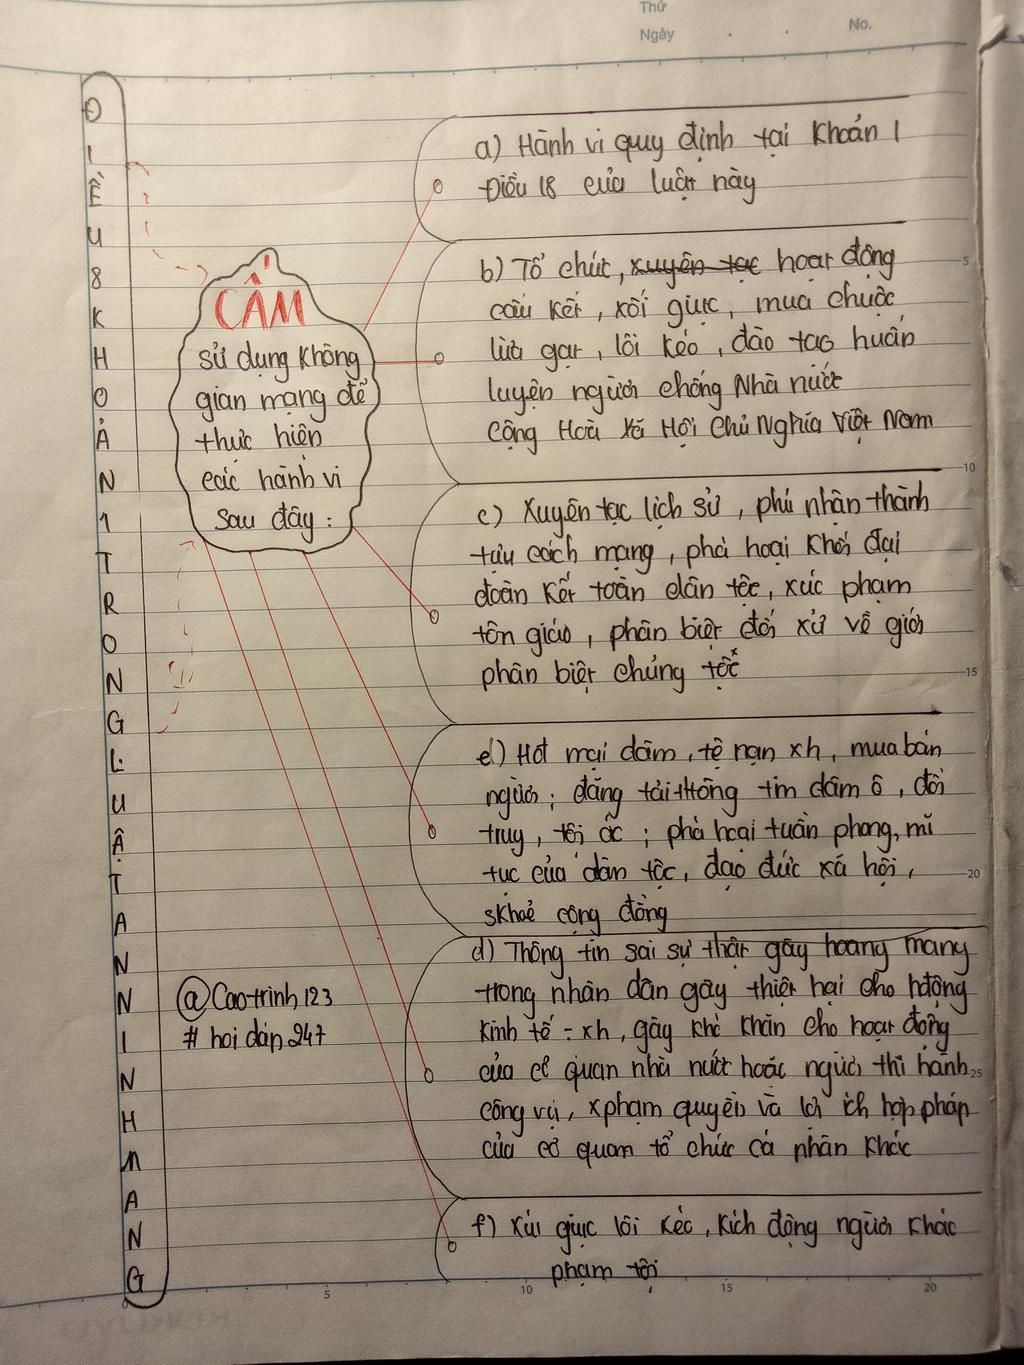 Thứ
Ngày
No.
ĐIỀU 8 KHOẢN 1 TRONG LUẬT AN NINH MẠNG
CẤM
sử dụng không
gian mạng để
thực hiện
các hành vi
sau đây :
a) Hành vi quy định tại Khoản 1
Điều 18 của luật này
b) Tổ chức, xuyên tạc hoạt động
câu kết, xối giục, mua chuộc
lừa gạt, lôi kéo, đào tạo huấn
luyện người chống Nhà nước
Cộng Hoà Xã Hội Chủ Nghĩa Việt Nam
c) Xuyên tạc lịch sử, phủ nhận thành
tựu cách mạng, phá hoại khối đại
đoàn kết toàn dân tộc, xúc phạm
tôn giáo, phân biệt đối xử về giới
phân biệt chủng tộc
e) Hđ mại dâm, tệ nạn xh, mua bán
người; đăng tải thông tin dâm ô, đồi
truỵ, tội ác; phá hoại tuần phong, mĩ
tục của dân tộc, đạo đức xã hội,
skhoẻ cộng đồng
d) Thông tin sai sự thật gây hoang mang
trong nhân dân gây thiệt hại cho hđộng
kinh tế - xh, gây khó khăn cho hoạt động
của cơ quan nhà nước hoặc người thi hành
công vụ, xphạm quyền và lợi ích hợp pháp
của cơ quan tổ chức cá nhân khác
f) Xúi giục lôi kéo, kích động người khác
phạm tội
@Caotrinh123
# hoi dap 247
5
10
15
20
25
5
10
15
20